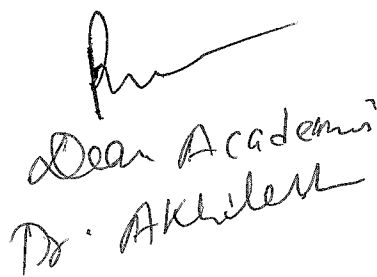 Dean Academis
Dr. Akhilesh